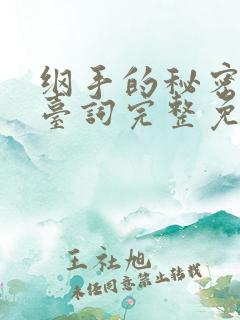 纲手的秘密
臺詞完整免
王社旭
未经同意禁止转载